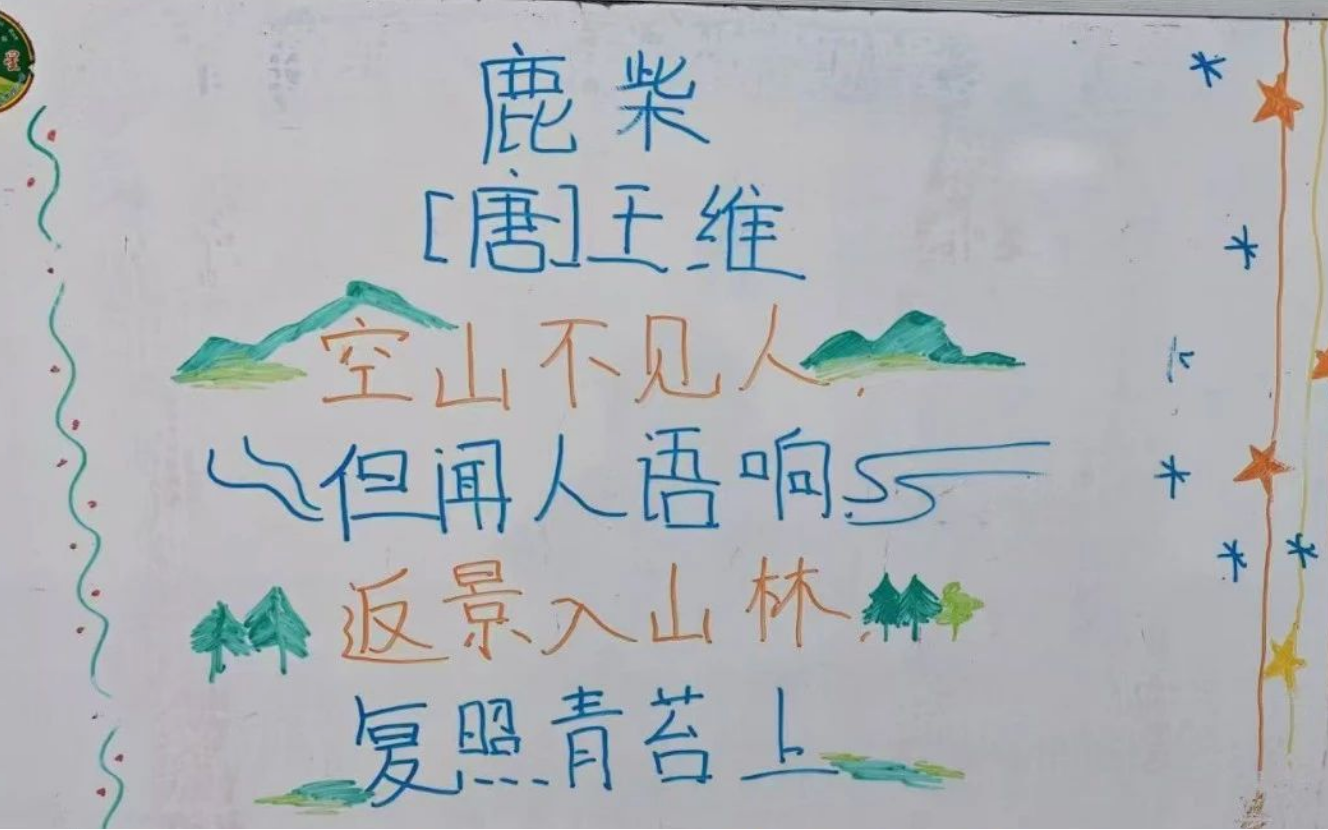 鹿柴
[唐]王维
空山不见人，
但闻人语响.
返景入山林，
复照青苔上